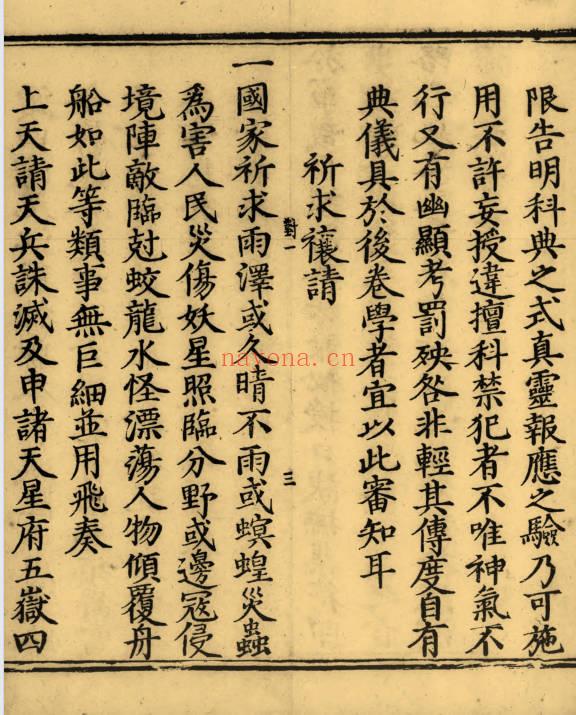 限告明科典之式真靈報應之驗乃可施
用不許妄授違擅科禁犯者不唯神氣不
行又有幽顯考罰殃咎非輕其傳度自有
典儀具於後卷學者宜以此審知耳
祈求禳請
對一
三
一國家祈求雨澤或久晴不雨或螟蝗災蟲
為害人民災傷妖星照臨分野或邊寇侵
境陣敵臨尅蛟龍水怪漂蕩人物傾覆舟
船如此等類事無巨細並用飛奏
上天請天兵誅滅及申諸天星府五嶽四
nayona.cn